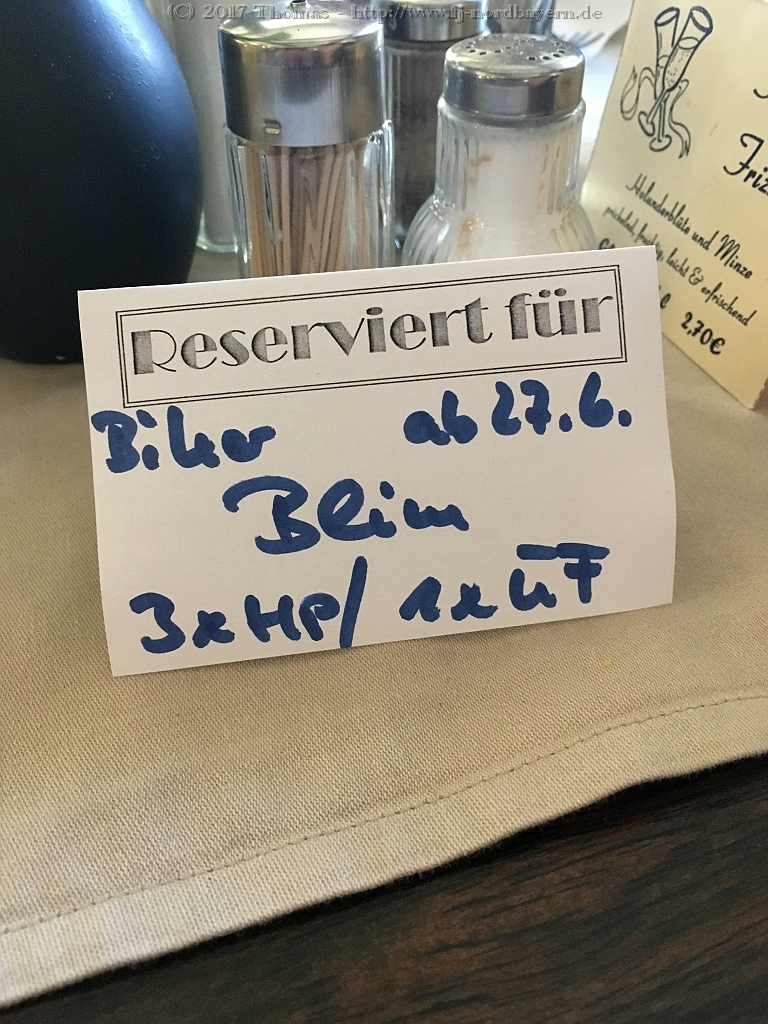 (C) 2017 Thomas - http://www.lj-nordbayern.de
Holunderblüte und Minze
prickelnd, fruchtig, leicht & erfrischend
2,70€
Reserviert für
Biker ab 27.6.
Bleim
3xHP/ 1xÜF